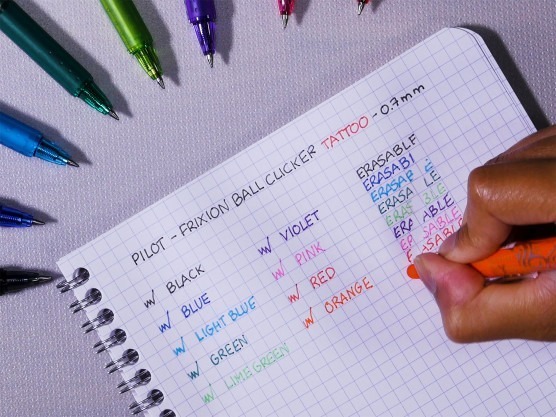 PILOT - FRIXION BALL CLICKER TATTOO - 0.7mm
w/ BLACK
w/ BLUE
w/ LIGHT BLUE
w/ GREEN
w/ LIME GREEN
w/ VIOLET
w/ PINK
w/ RED
w/ ORANGE
ERASABLE
ERASABL
ERASAB E
ERASA LE
ERAS BLE
ERA ABLE
ER SABLE
E ASABL